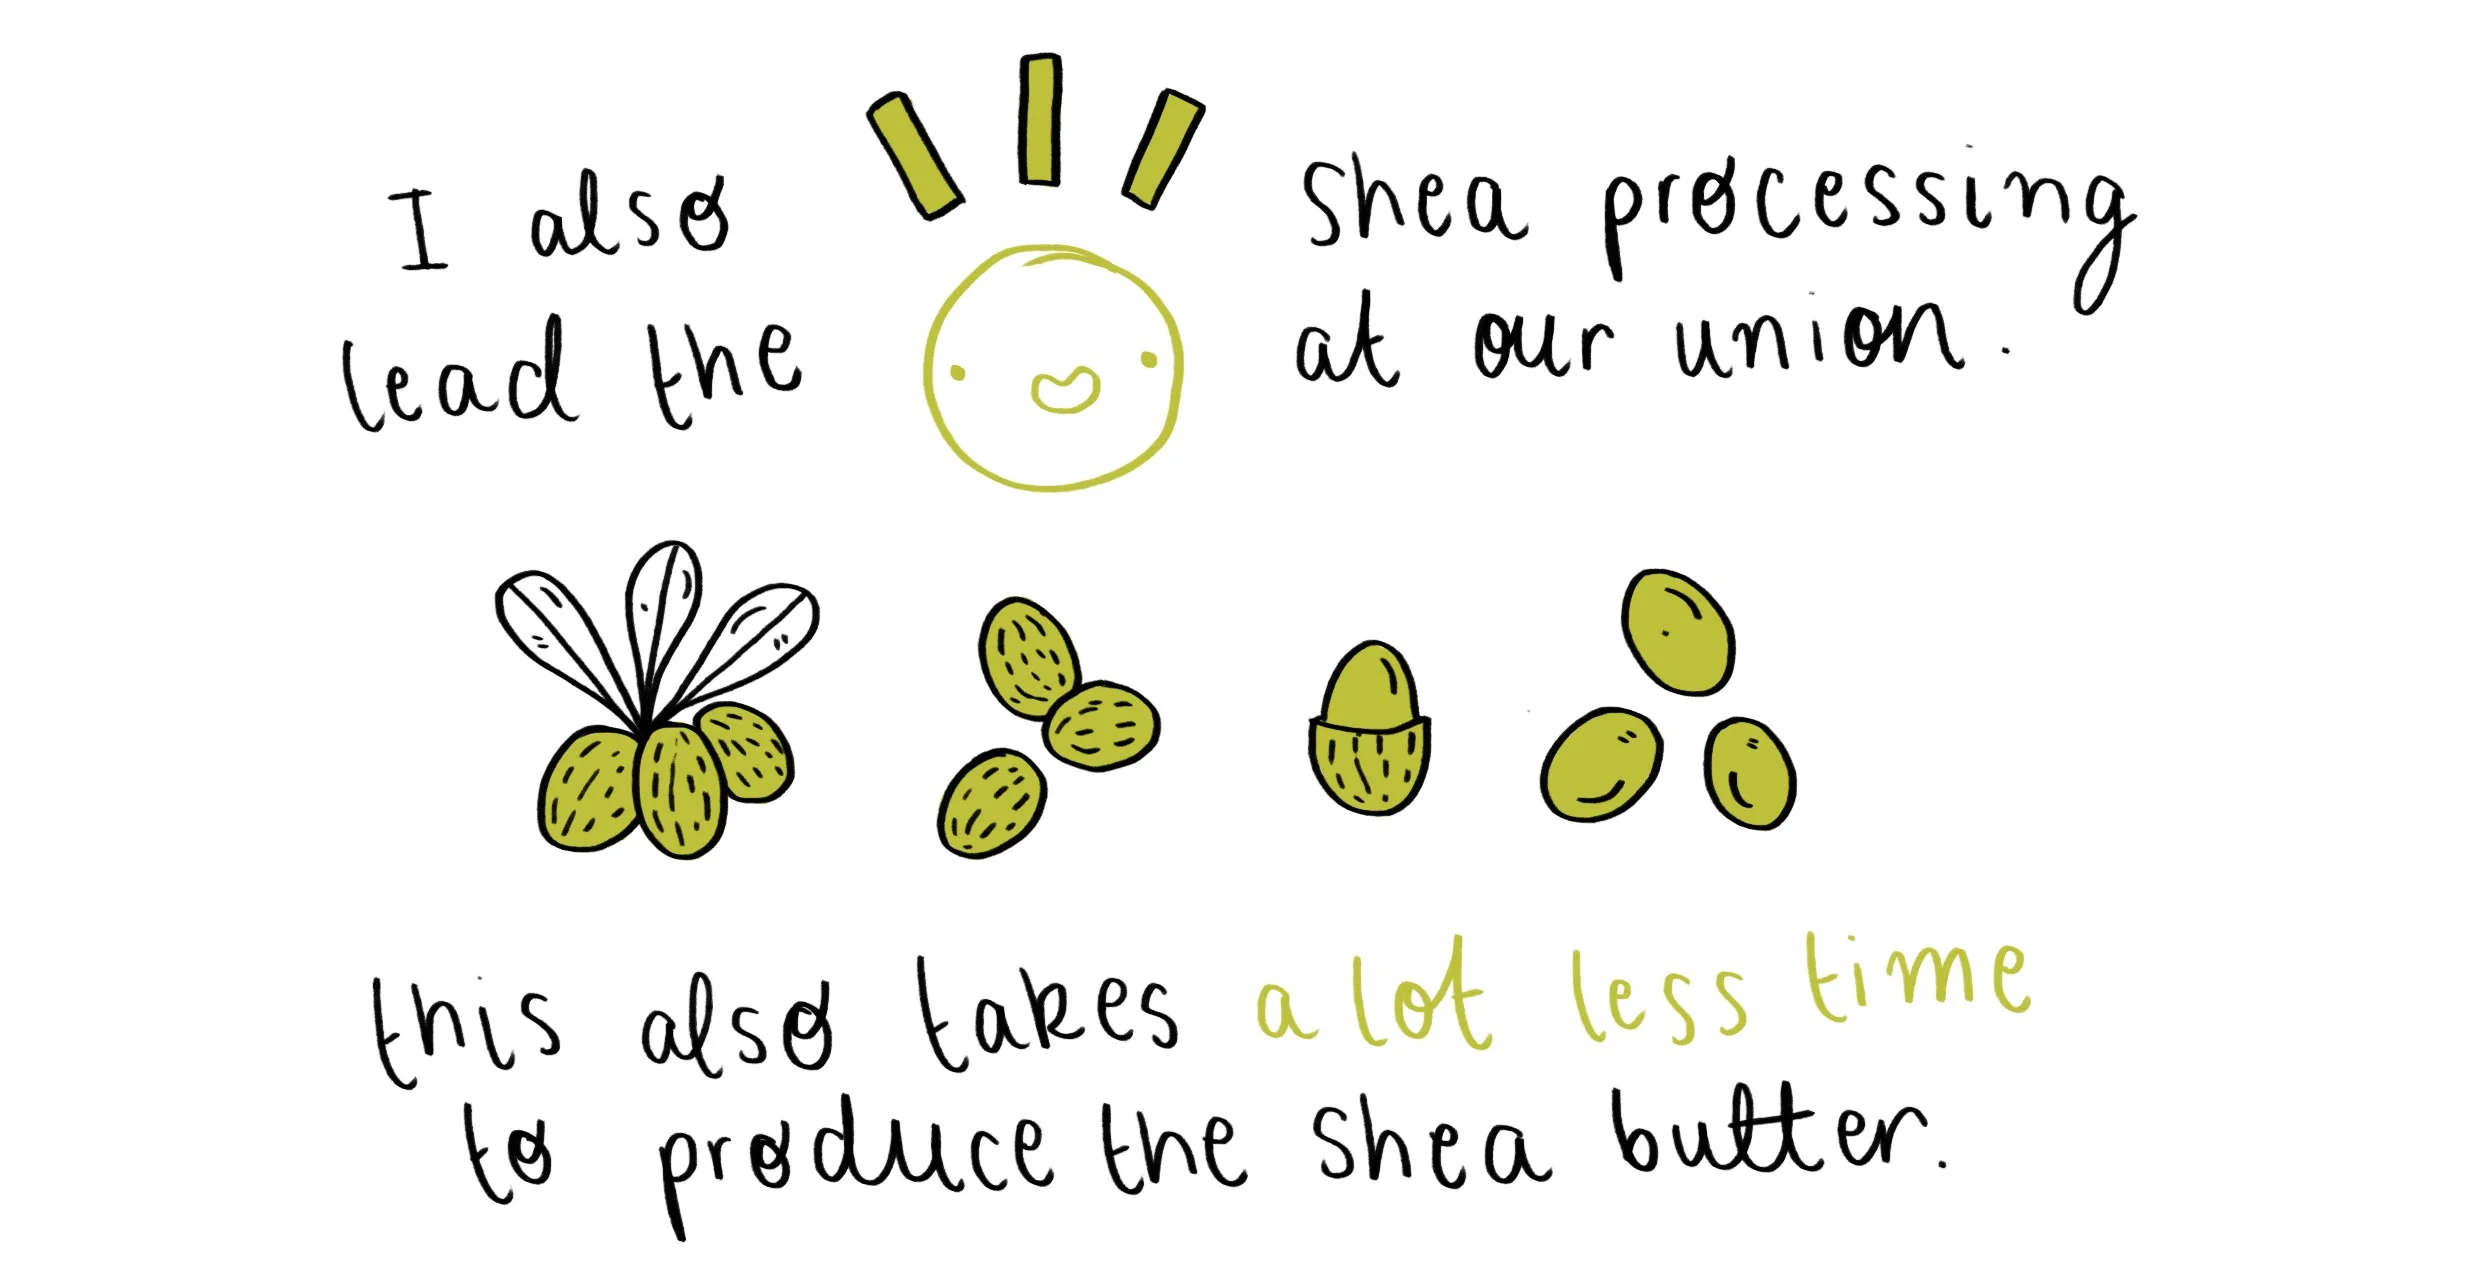 I also
lead the
shea processing
at our union.
this also takes a lot less time
to produce the shea butter.